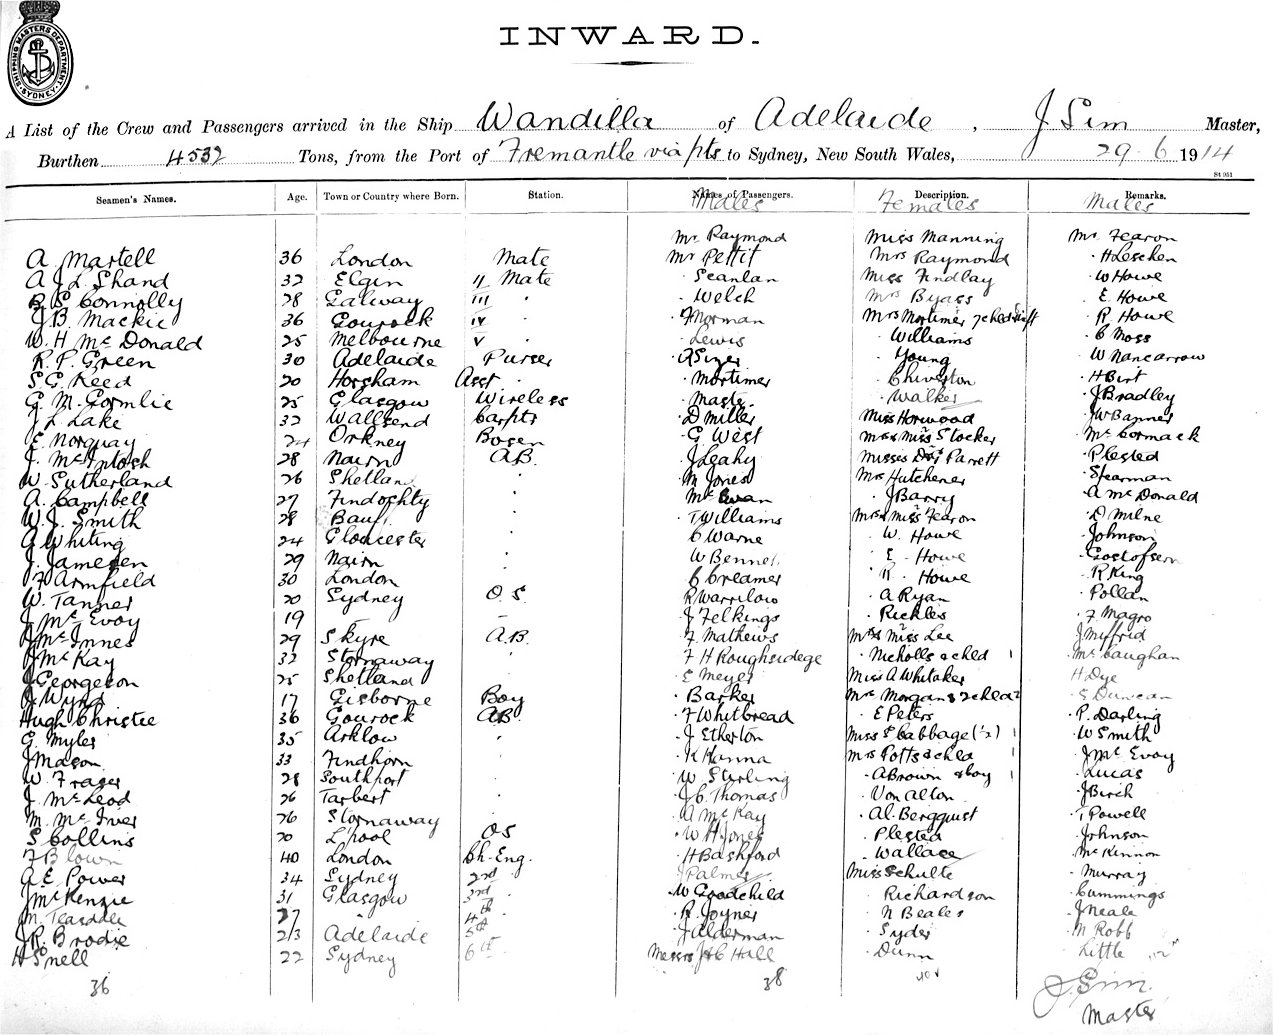 SHIPPING MASTERS DEPARTMENT
SYDNEY
INWARD.
A List of the Crew and Passengers arrived in the Ship Wandilla of Adelaide, J Sim Master,
Burthen 4532 Tons, from the Port of Fremantle via pts to Sydney, New South Wales, 29.6.1914
St 951
Seamen's Names. Age. Town or Country where Born. Station. Names of Passengers. Description. Remarks.
Males Females Males
Mr Raymond Miss Manning Mr Fearon
A Martell 36 London Mate Mr Pettit Mrs Raymond H Leschen
A J L Shand 32 Elgin II Mate Scanlan Miss Findlay W Howe
R S Connolly 28 Galway III Welch Mrs Byass E. Howe
J B Mackie 36 Gourock IV F Norman Mrs Mortimer R Howe
W. H Mc Donald 25 Melbourne V Lewis Williams C Moss
R. P. Green 30 Adelaide Purser A Sizer Young W Nancarrow
S G Reed 20 Horsham Asst Mortimer Chiverton H Birt
G M Gormlie 25 Glasgow Wireless Walker J Bradley
J L Lake 32 Wallsend Carptr D Miller Miss Horwood J W Banner
E Norquay 24 Orkney Bosen G West Mrs & Miss Stocker Mc Cormack
J. McIntosh 28 Nairn A.B. J Leahy Misses Parrett Plested
W. Sutherland 26 M Jones Mrs Hutchener Spearman
A. Campbell 27 Findochty J Barry A Mc Donald
W J. Smith 28 T Williams Mrs & Miss Fearon D Milne
A Whiting 24 Gloucester C Warne W. Howe Johnson
J. Jamesen 29 Nairn E. Howe
F Armfield 30 London C Creamer R. Howe R King
W. Tanner 20 Sydney O.S. R Warrilow A Ryan Pollan
J McEvoy 19 – – J Felkings Rickles F Magro
McInnes 29 Skyre A.B. F Mathews Mrs & Miss Lee J Miffrid
McKay 32 Stornaway F H Roughsidege Nicholls & chld 1 McCaughan
J Georgeson 25 Shetland E Meyer Miss A Whitaker H Dye
Wynd 17 Gisborne Boy Barker Mrs Morgan & 2 chld 2 S Duncan
Hugh Christie 36 Gourock AB F Whitbread E Peters P. Darling
G. Myles 35 Arklow J Etherton Miss S Cabbage (½) 1 W Smith
J Mason 33 Findhorn K Hanna Mrs Potts & chld 1 J McEvoy
W. Fraser 28 Southport W Stirling A Brown & boy 1 Lucas
J. McLeod 26 Tarbert J C. Thomas Von Alton J Birch
M. McIver 26 Stornaway A McKay Al. Bergquist T Powell
S Collins 20 L'pool OS W H Jones Plested Johnson
F Blown 40 London Ch. Eng. H Bashford Wallace McKinnon
A E Power 34 Sydney 2nd Palmer Miss Schulte Murray
J McKenzie 31 Glasgow 3rd W Goodchild Richardson Cummings
M. Teasdale 27 4th R. Joyner N Beales J Neale
J R. Brodie 23 Adelaide 5th J Alderman Syder M Robb
H Snell 22 Sydney 6th Messrs J & C Hall Dunn Little
36 38 40
J. Sim
Master